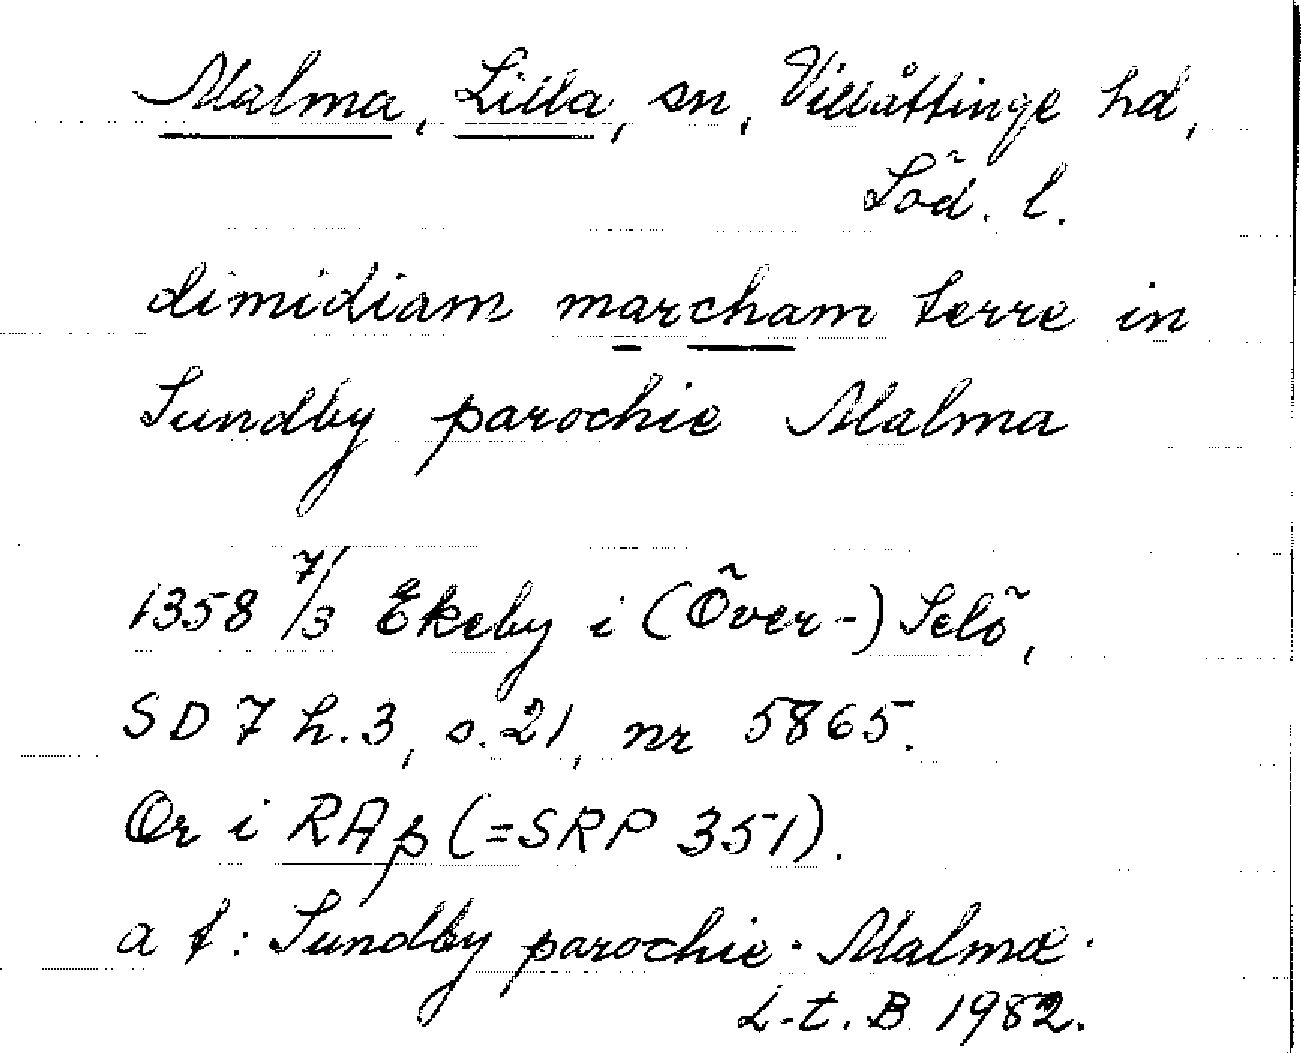 Malma, Lilla, sn, Villåttinge hd,
Söd. l.
dimidiam marcham terre in
Sundby parochie Malma
1358 7/3 Ekeby i (Över-) Selö,
SD 7 h. 3, s. 21, nr 5865.
Or i RAp (=SRP 351).
a t: Sundby parochie · Malma ·
L-t. B 1982.